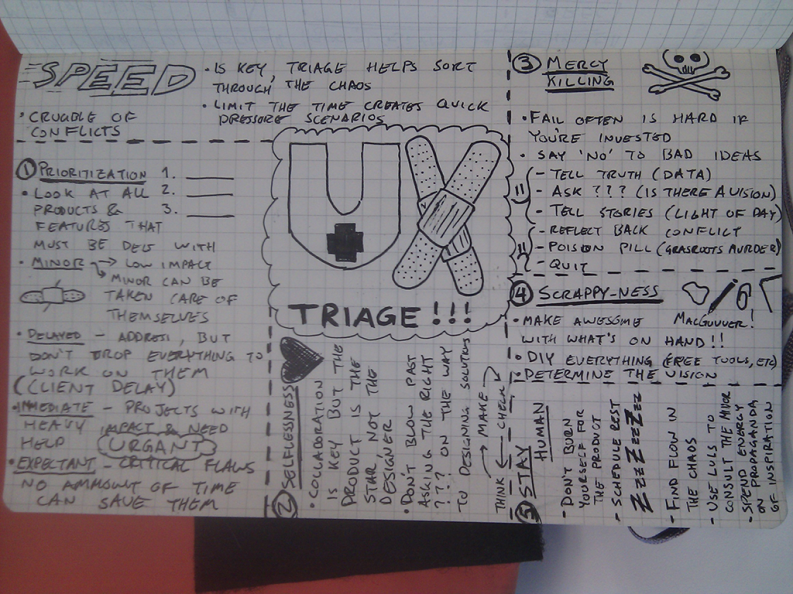 SPEED
• IS KEY, TRIAGE HELPS SORT
THROUGH THE CHAOS
• LIMIT THE TIME CREATES QUICK
PRESSURE SCENARIOS
• CRUCIBLE OF
CONFLICTS
① PRIORITIZATION 1.
• LOOK AT ALL 2.
PRODUCTS & 3.
FEATURES THAT
MUST BE DELT WITH
• MINOR → LOW IMPACT
→ MINOR CAN BE
TAKEN CARE OF
THEMSELVES
• DELAYED - ADDRESS, BUT
DON'T DROP EVERYTHING TO
WORK ON THEM
(CLIENT DELAY)
• IMMEDIATE - PROJECTS WITH
HEAVY IMPACT & NEED
HELP (URGANT)
• EXPECTANT - CRITICAL FLAWS
NO AMMOUNT OF TIME
CAN SAVE THEM
UX
TRIAGE!!!
② SELFLESSNESS
• COLLABORATION
IS KEY BUT THE
PRODUCT IS THE
STAR, NOT THE
DESIGNER
• DON'T BLOW PAST
ASKING THE RIGHT
??? ON THE WAY
TO DESIGNING SOLUTIONS
THINK ← CHECK ← MAKE
③ MERCY
KILLING
• FAIL OFTEN IS HARD IF
YOU'RE INVESTED
• SAY 'NO' TO BAD IDEAS
- TELL TRUTH (DATA)
- ASK ??? (IS THERE A VISION)
- TELL STORIES (LIGHT OF DAY)
- REFLECT BACK CONFLICT
- POISION PILL (GRASSROOTS MURDER)
- QUIT
④ SCRAPPY-NESS
• MAKE AWESOME
WITH WHAT'S ON HAND!!
MACGUUVER!
• DIY EVERYTHING (FREE TOOLS, ETC)
• DETERMINE THE VISION
⑤ STAY
HUMAN
- DON'T BURN
YOURSELF FOR
THE PRODUCT
- SCHEDULE REST
ZZZZZZZZZ
- FIND FLOW IN
THE CHAOS
- USE LULS TO
CONSULT THE
- SPEND ENERGY
ON PROPAGANDA
OF INSPIRATION